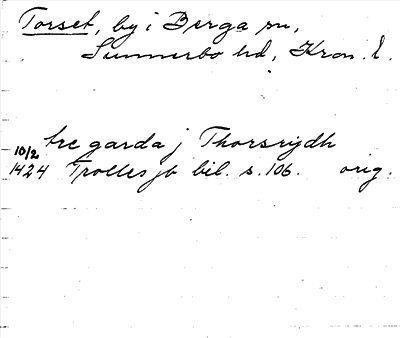 Torset, by i Berga sn,
Sunnerbo hd, Kron. l.
tre garda j Thorsrydh
10/2
1424 Trolles jb bil. s. 106. orig.